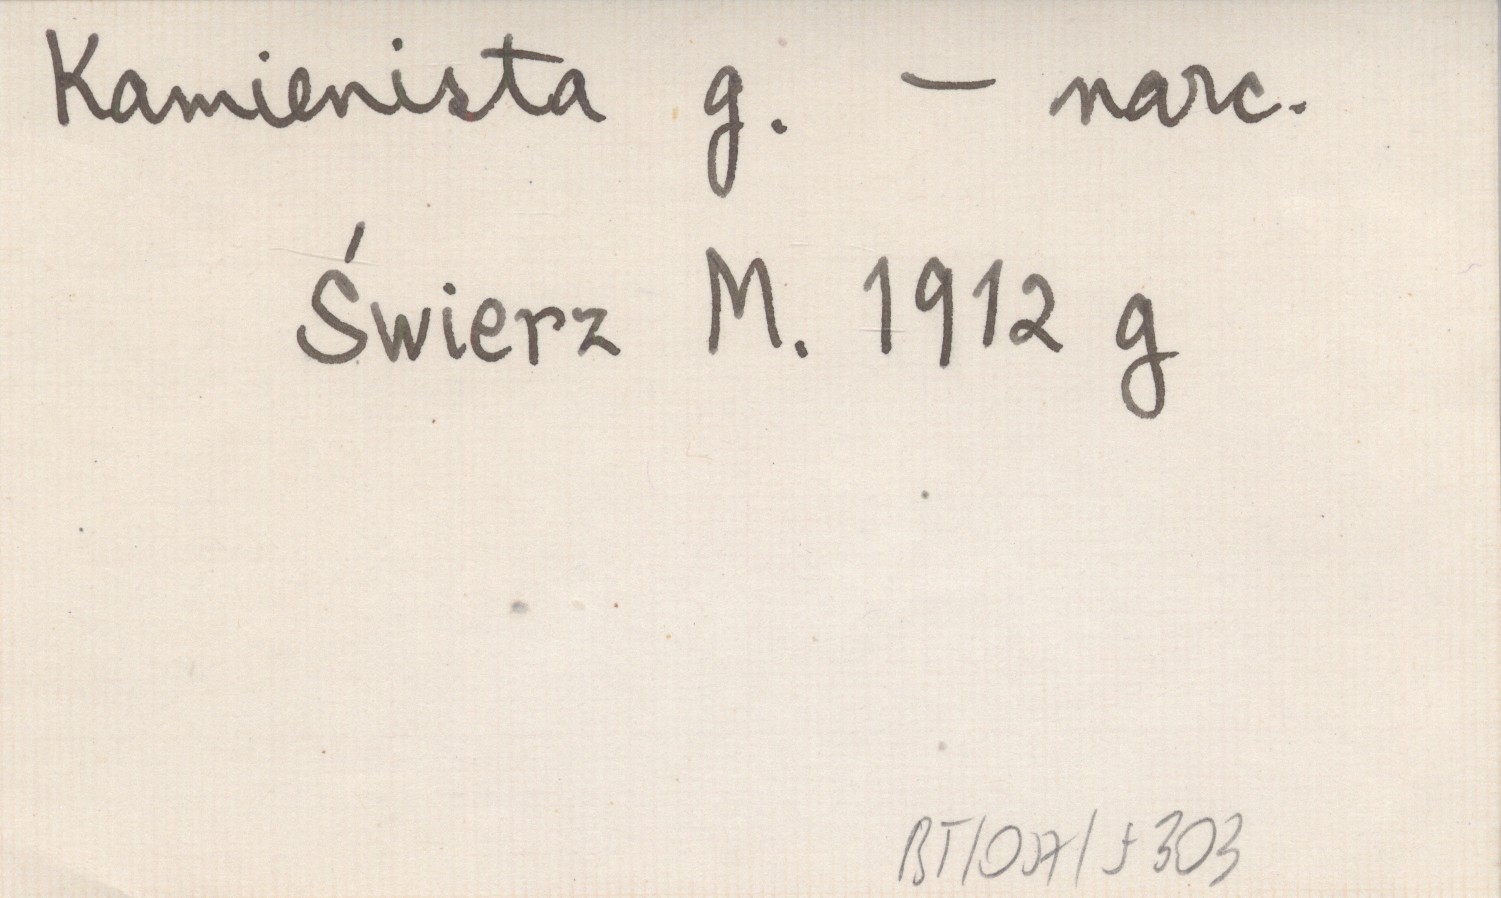 Kamienista g. – narc.
Świerz M. 1912 g
303